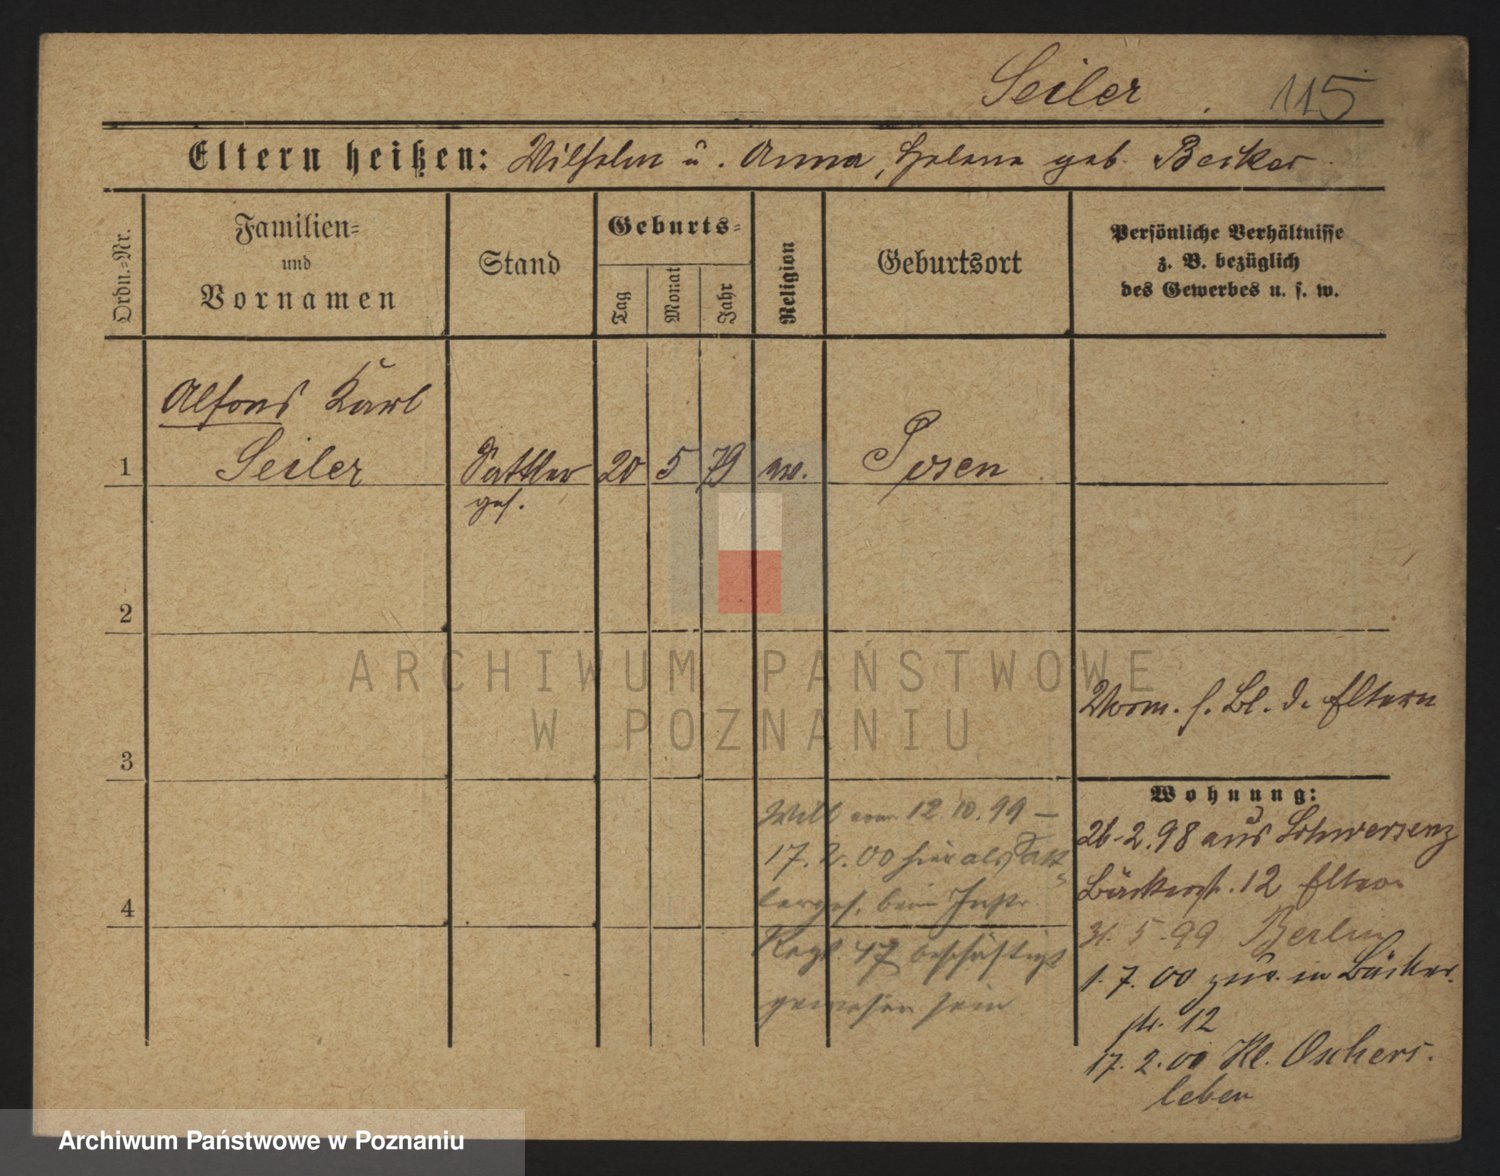 Seiler 115
Eltern heißen: Wilhelm u. Anna, Helena geb. Becker
Ordn.-Nr.
Familien-
und
Vornamen
Stand
Geburts-
Tag
Monat
Jahr
Religion
Geburtsort
Persönliche Verhältnisse
z. B. bezüglich
des Gewerbes u. s. w.
Alfons Karl
1 Seiler Sattler 20 5 79 Posen
ges.
2
ARCHIWUM PAŃSTWOWE
W POZNANIU
Vorm. s. Bl. d. Eltern
3
Wohnung:
Will vom 12.10.99 –
17.2.00 hier als Satt
lerges. beim Inftr.
Regt. 47 beschäftigt
gewesen sein
4
26.2.98 aus Schwersenz
Bäckerstr. 12 Eltern
31.5.99 Berlin
1.7.00 zur. in Bäcker
str. 12
17.2.00 Kl. Oschers
leben
Archiwum Państwowe w Poznaniu